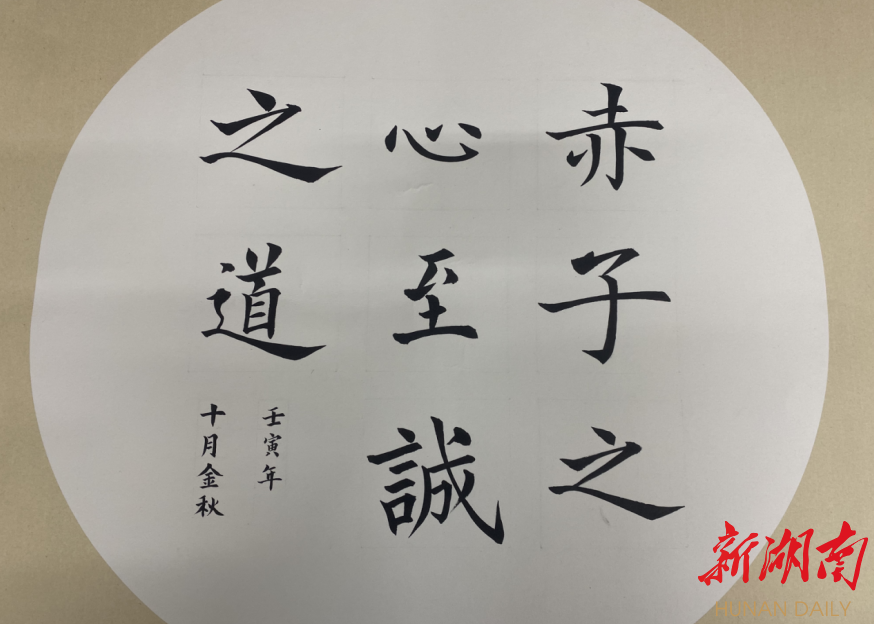 赤子之
心至誠
之道
壬寅年
十月金秋
新湖南
HUNAN DAILY